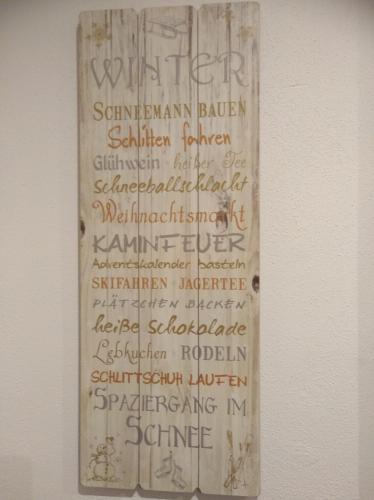 WINTER
SCHNEEMANN BAUEN
Schlitten fahren
Glühwein heißer Tee
Schneeballschlacht
Weihnachtsmarkt
KAMINFEUER
Adventskalender basteln
SKIFAHREN JAGERTEE
PLÄTZCHEN BACKEN
heiße Schokolade
Lebkuchen RODELN
SCHLITTSCHUH LAUFEN
SPAZIERGANG IM
SCHNEE